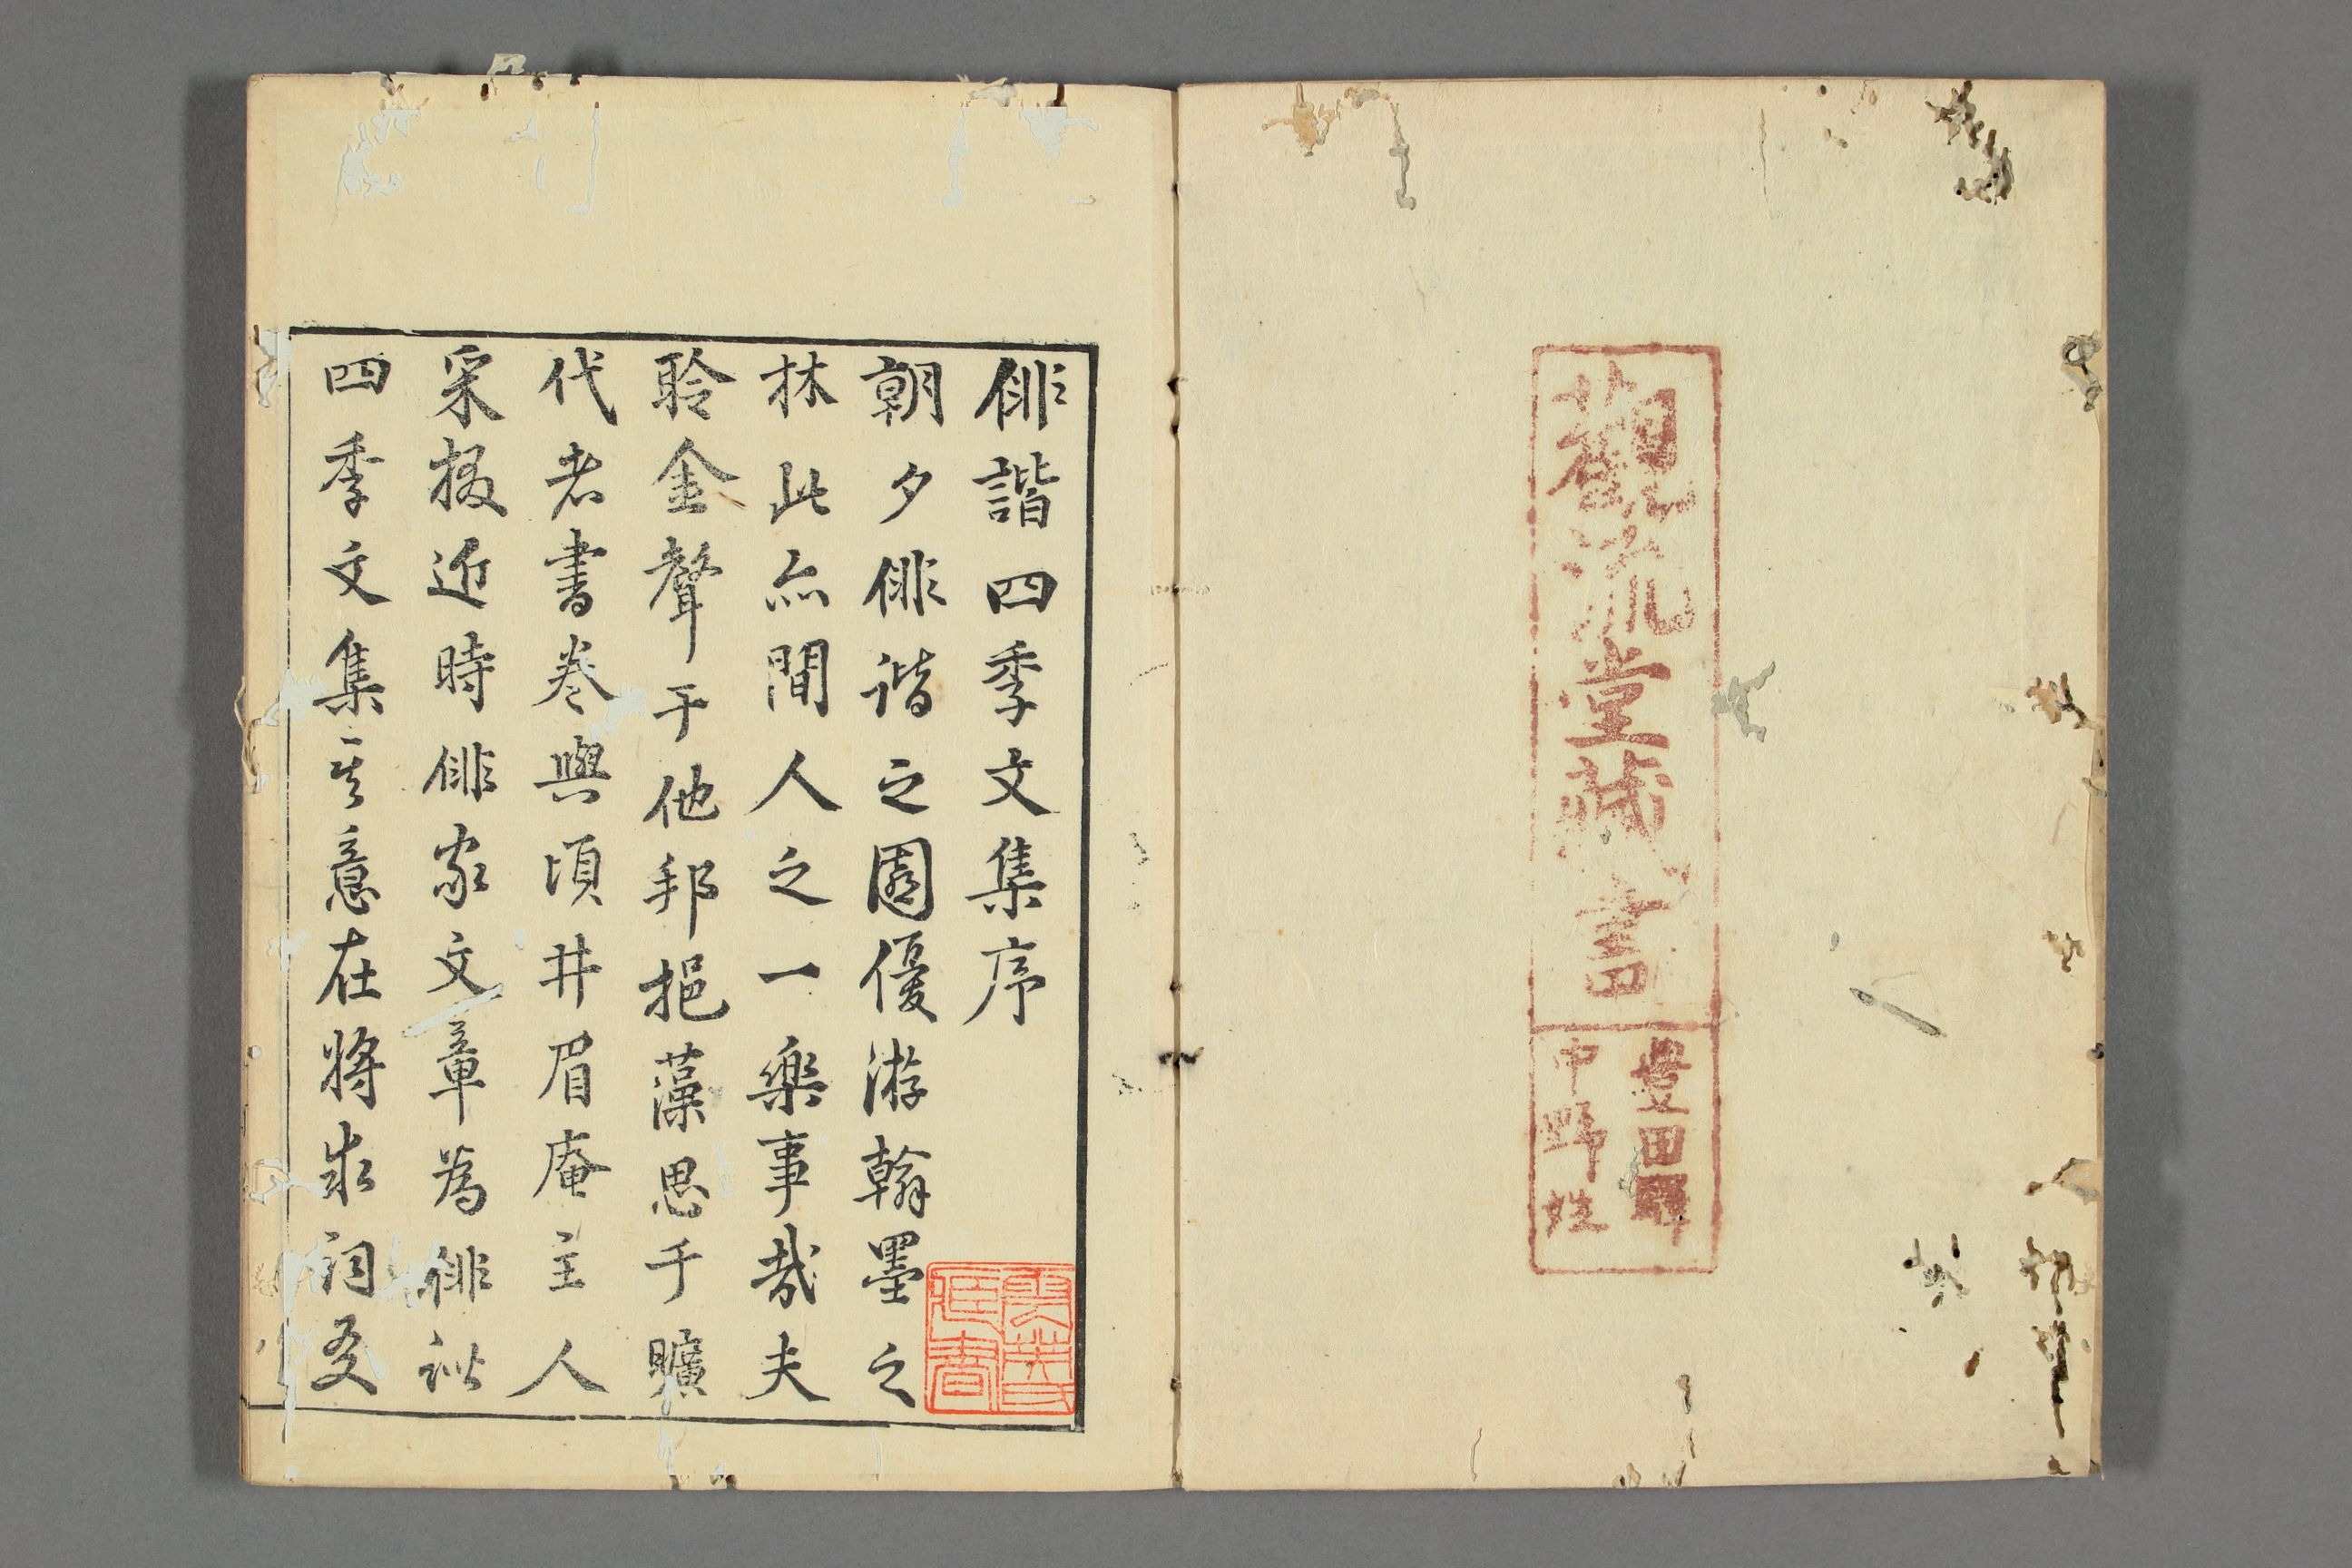 觀流堂藏書
豊田驛
中野姓
俳諧四季文集序
朝夕俳諧之園優游翰墨之
林此亦間人之一樂事哉夫
聆金聲于他邦挹藻思于曠
代者書卷與頃井眉庵主人
采掇近時俳家文章為俳
四季文集其意在將求詞友
雲英
臧書